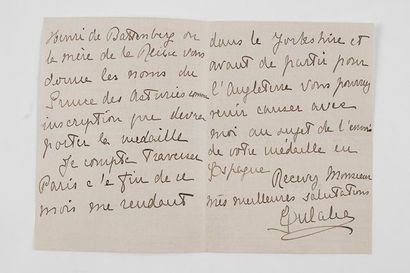 Henri de Battenberg ou
la mère de la Reine vous
donne les noms du
Prince des Asturies comme
inscription que devra
porter la médaille
Je compte traverser
Paris à le fin de ce
mois me rendant
dans le Yorkshire et
avant de partir pour
l'Angleterre vous pourrez
venir causer avec
moi au sujet de l'envoi
de votre médaille en
Espagne
Recevez Monsieur
mes meilleures salutations
Eulalie